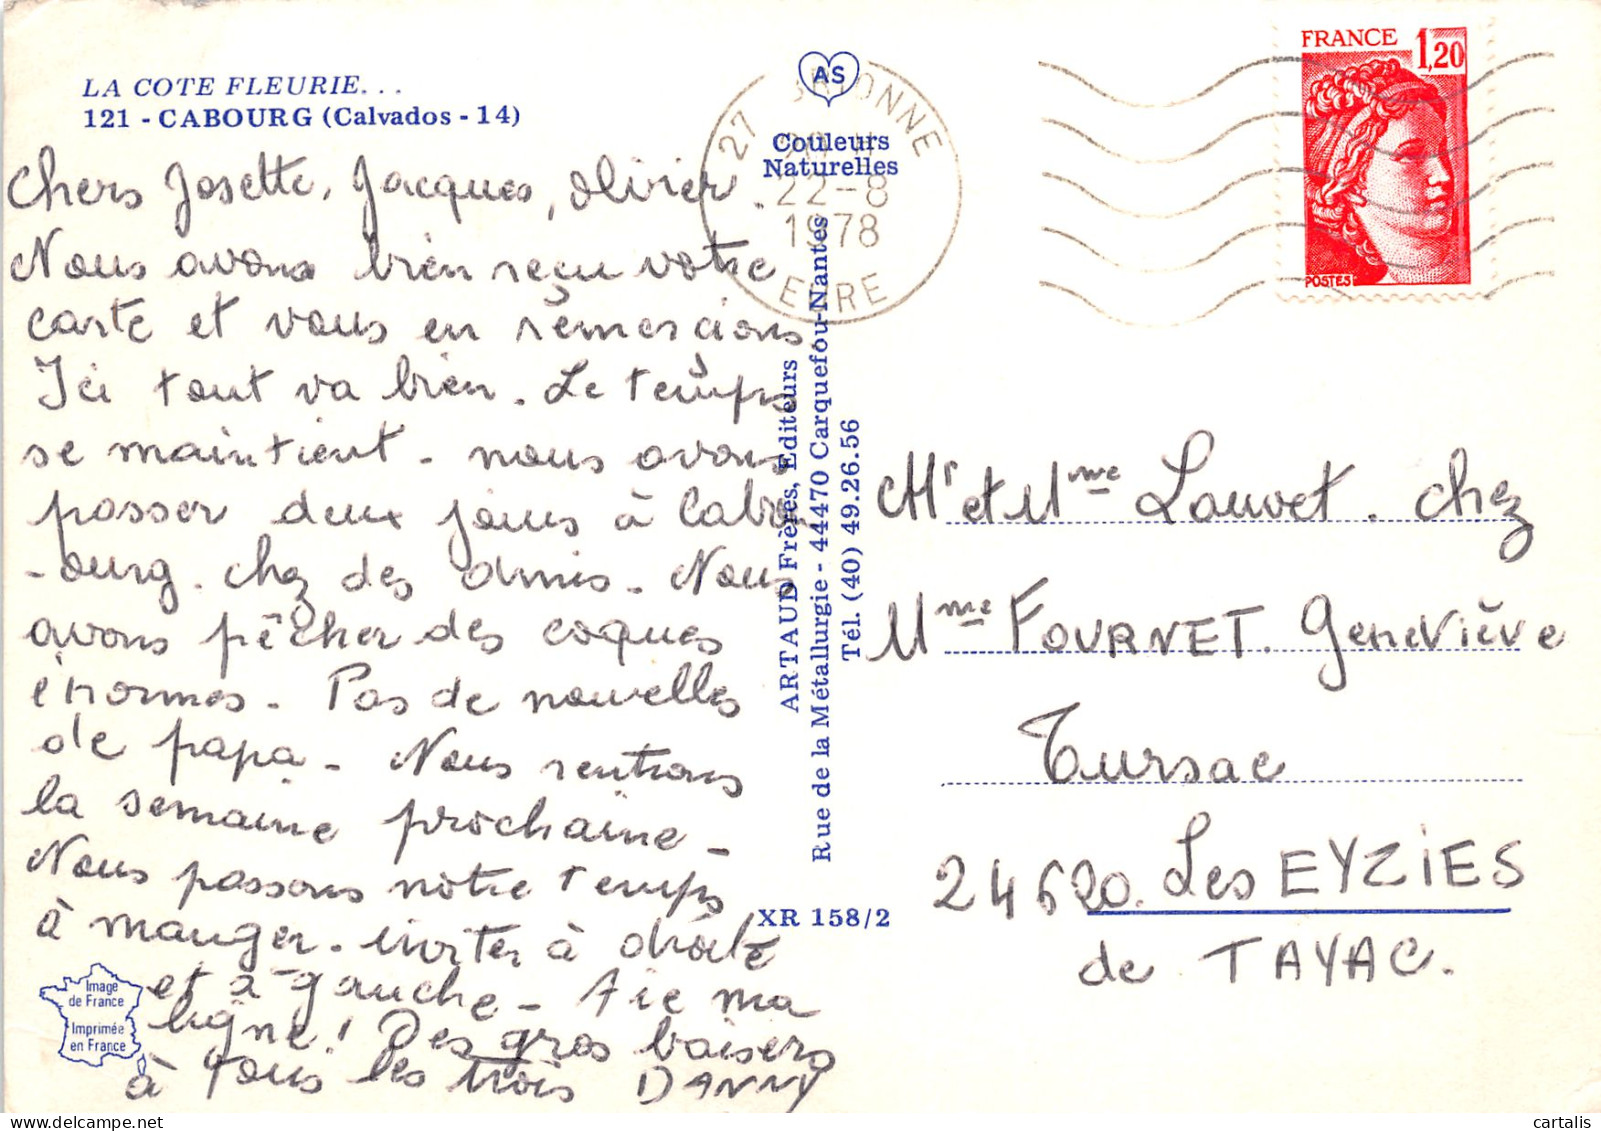 LA COTE FLEURIE...
121 - CABOURG (Calvados - 14)
Chers Josette, Jacques, Olivier.
Nous avons bien reçu votre
carte et vous en remercions.
Ici tout va bien. Le temps
se maintient - nous avons
passer deux jours à Cabo
-ourg. chez des amis - Nous
avons pêcher des coques
énormes - Pas de nouvelles
de papa - Nous rentrons
la semaine prochaine -
Nous passons notre temps
à manger - inviter à droite
et à gauche - Aie ma
ligne! Des gros baisers
à tous les trois DANNY
Image
de France
Imprimée
en France
AS
Couleurs
Naturelles
ARTAUD Frères, Editeurs
Rue de la Métallurgie - 44470 Carquefou-Nantes
Tél. (40) 49.26.56
XR 158/2
27 BRIONNE
22-8
1978
EURE
FRANCE 1,20
POSTES
Mr et Mme Louvet. chez
Mme FOURNET. Geneviève
Tursac
24620. Les EYZIES
de TAYAC.
cartalis